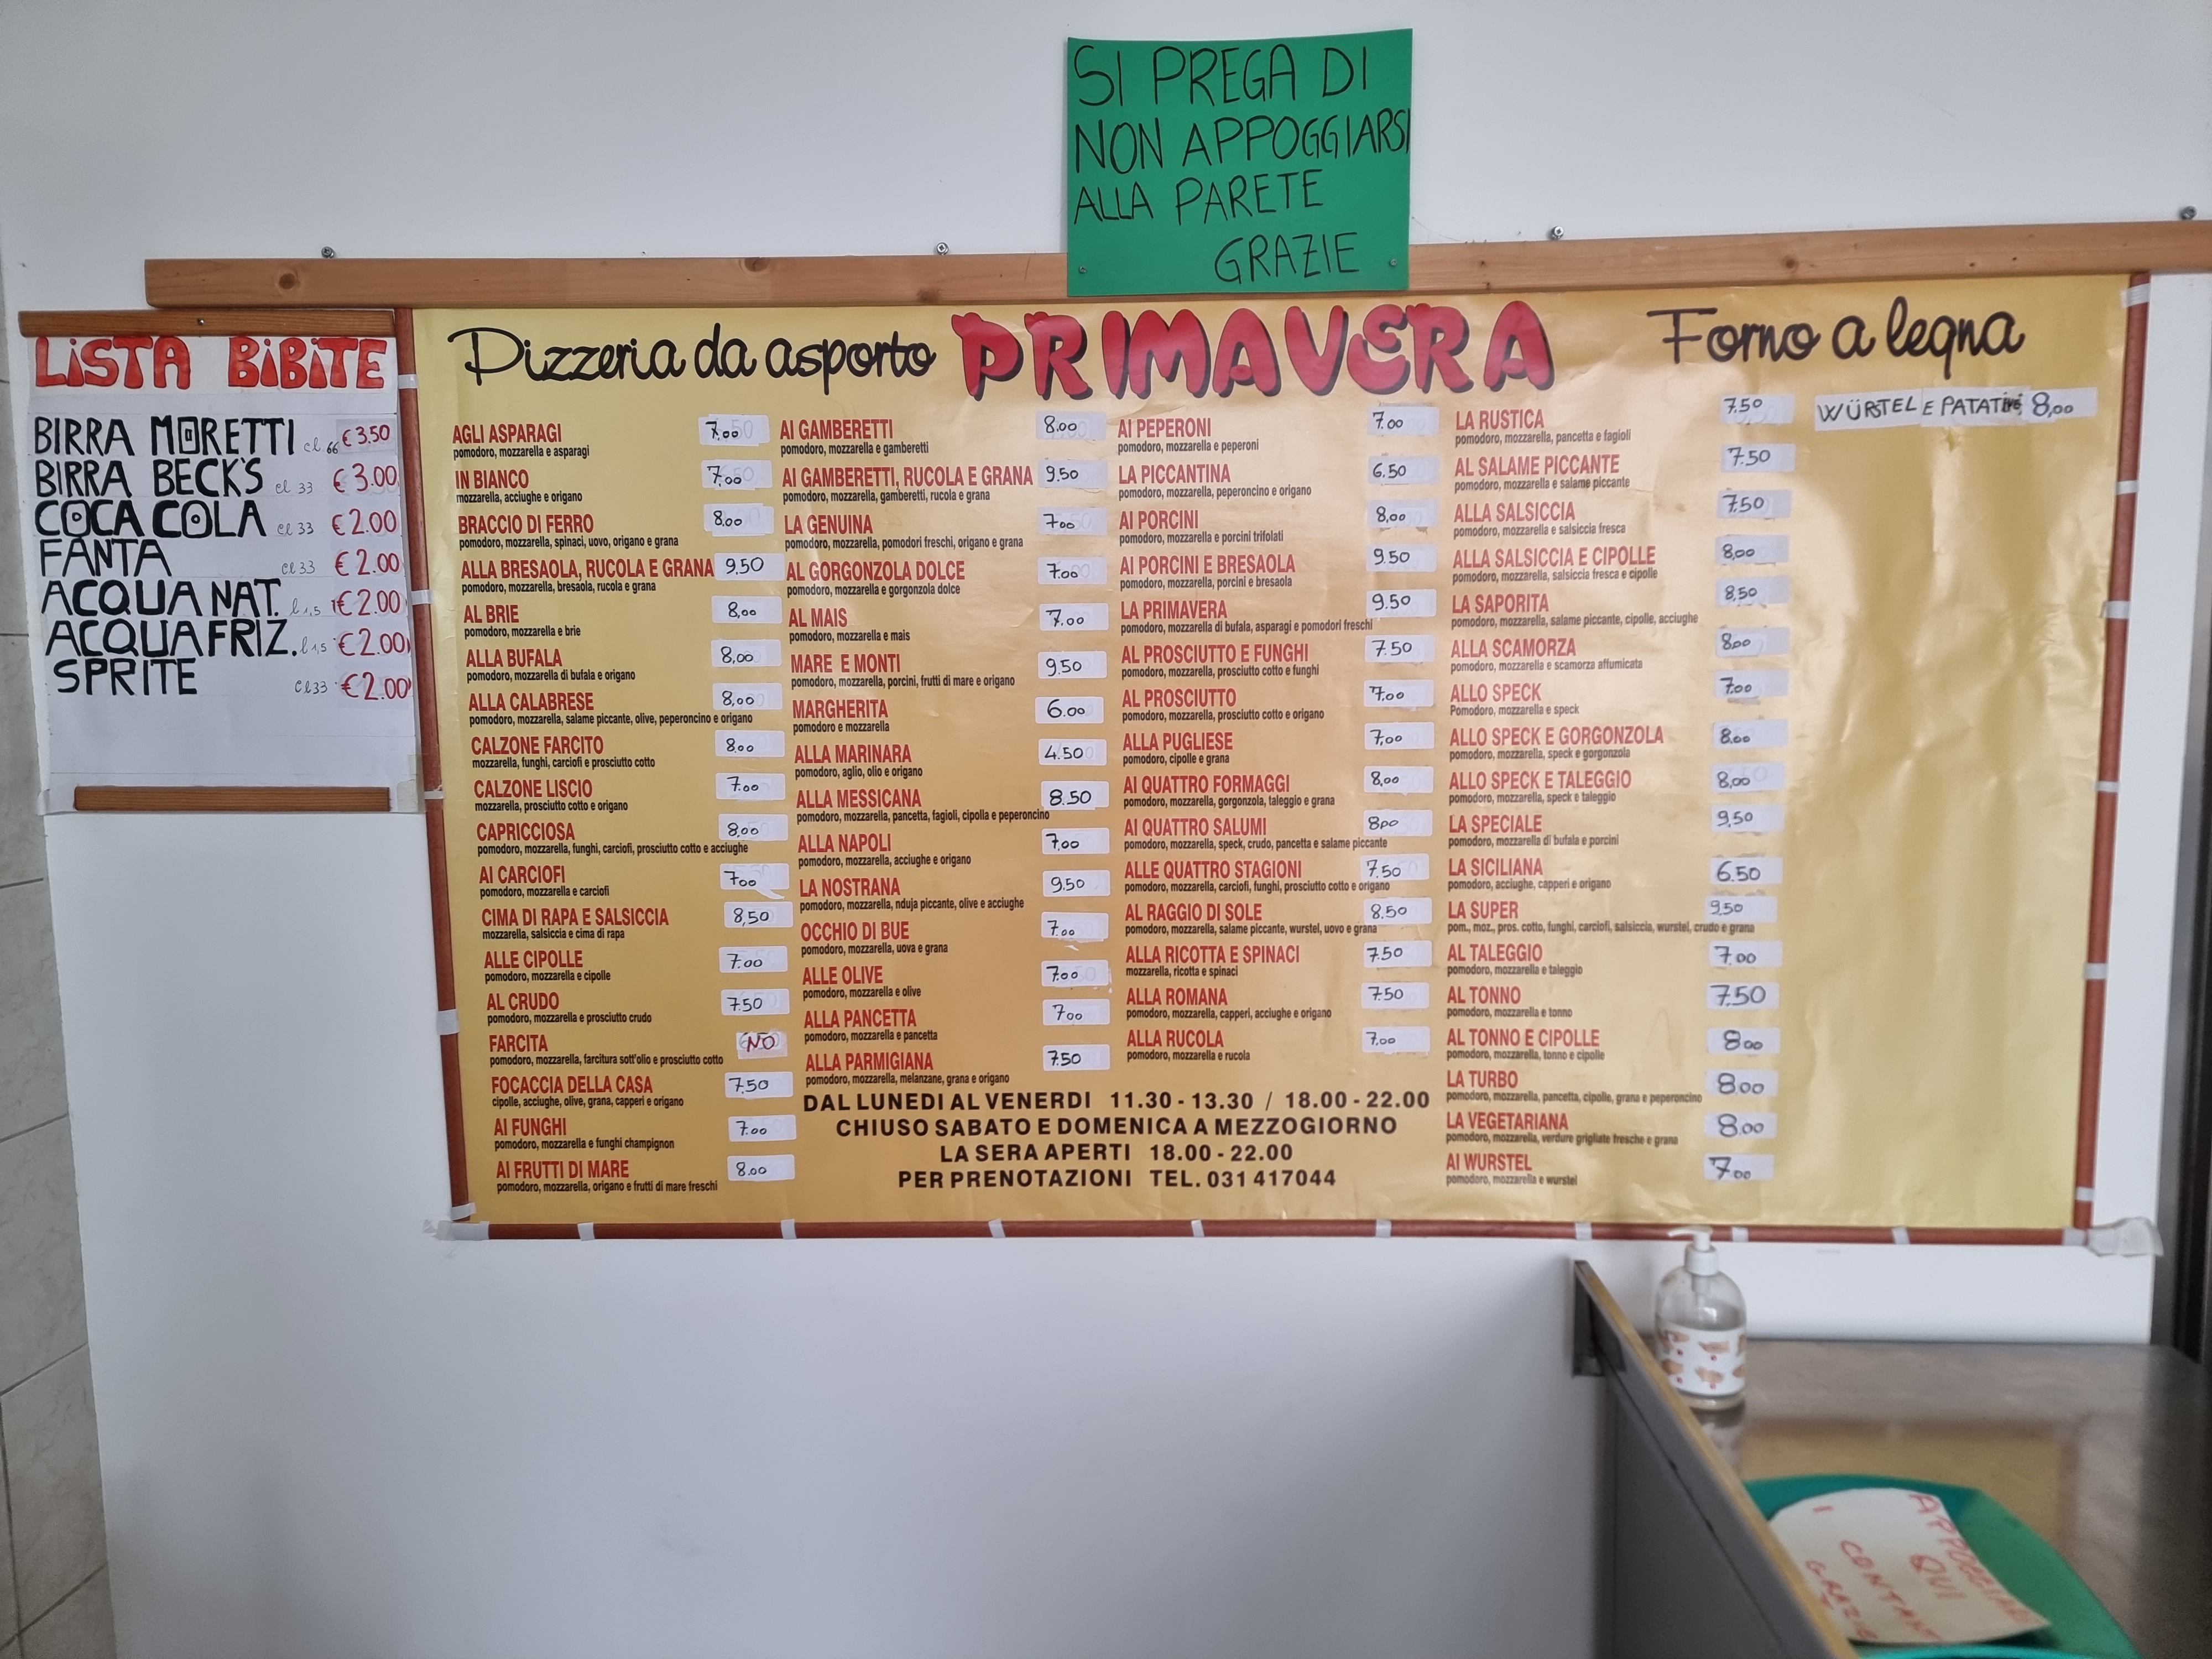 SI PREGA DI
NON APPOGGIARSI
ALLA PARETE
GRAZIE
LISTA BIBITE
BIRRA MORETTI cl 66 € 3.50
BIRRA BECK'S cl 33 € 3.00
COCA COLA cl 33 € 2.00
FANTA cl 33 € 2.00
ACQUA NAT. l 1,5 € 2.00
ACQUA FRIZ. l 1,5 € 2.00
SPRITE cl 33 € 2.00
Pizzeria da asporto PRIMAVERA Forno a legna
AGLI ASPARAGI 7.00
pomodoro, mozzarella e asparagi
IN BIANCO 7,00
mozzarella, acciughe e origano
BRACCIO DI FERRO 8,00
pomodoro, mozzarella, spinaci, uovo, origano e grana
ALLA BRESAOLA, RUCOLA E GRANA 9.50
pomodoro, mozzarella, bresaola, rucola e grana
AL BRIE 8,00
pomodoro, mozzarella e brie
ALLA BUFALA 8,00
pomodoro, mozzarella di bufala e origano
ALLA CALABRESE 8,00
pomodoro, mozzarella, salame piccante, olive, peperoncino e origano
CALZONE FARCITO 8.00
mozzarella, funghi, carciofi e prosciutto cotto
CALZONE LISCIO 7.00
mozzarella, prosciutto cotto e origano
CAPRICCIOSA 8,00
pomodoro, mozzarella, funghi, carciofi, prosciutto cotto e acciughe
AI CARCIOFI 7.00
pomodoro, mozzarella e carciofi
CIMA DI RAPA E SALSICCIA 8,50
mozzarella, salsiccia e cima di rapa
ALLE CIPOLLE 7.00
pomodoro, mozzarella e cipolle
AL CRUDO 7.50
pomodoro, mozzarella e prosciutto crudo
FARCITA NO
pomodoro, mozzarella, farcitura sott'olio e prosciutto cotto
FOCACCIA DELLA CASA 7.50
cipolle, acciughe, olive, grana, capperi e origano
AI FUNGHI 7.00
pomodoro, mozzarella e funghi champignon
AI FRUTTI DI MARE 8.00
pomodoro, mozzarella, origano e frutti di mare freschi
AI GAMBERETTI 8.00
pomodoro, mozzarella e gamberetti
AI GAMBERETTI, RUCOLA E GRANA 9.50
pomodoro, mozzarella, gamberetti, rucola e grana
LA GENUINA 7.00
pomodoro, mozzarella, pomodori freschi, origano e grana
AL GORGONZOLA DOLCE 7.00
pomodoro, mozzarella e gorgonzola dolce
AL MAIS 7.00
pomodoro, mozzarella e mais
MARE E MONTI 9.50
pomodoro, mozzarella, porcini, frutti di mare e origano
MARGHERITA 6.00
pomodoro e mozzarella
ALLA MARINARA 4.50
pomodoro, aglio, olio e origano
ALLA MESSICANA 8.50
pomodoro, mozzarella, pancetta, fagioli, cipolla e peperoncino
ALLA NAPOLI 7,00
pomodoro, mozzarella, acciughe e origano
LA NOSTRANA 9.50
pomodoro, mozzarella, nduja piccante, olive e acciughe
OCCHIO DI BUE 7.00
pomodoro, mozzarella, uova e grana
ALLE OLIVE 7.00
pomodoro, mozzarella e olive
ALLA PANCETTA 7.00
pomodoro, mozzarella e pancetta
ALLA PARMIGIANA 7.50
pomodoro, mozzarella, melanzane, grana e origano
AI PEPERONI 7.00
pomodoro, mozzarella e peperoni
LA PICCANTINA 6.50
pomodoro, mozzarella, peperoncino e origano
AI PORCINI 8,00
pomodoro, mozzarella e porcini trifolati
AI PORCINI E BRESAOLA 9.50
pomodoro, mozzarella, porcini e bresaola
LA PRIMAVERA 9.50
pomodoro, mozzarella di bufala, asparagi e pomodori freschi
AL PROSCIUTTO E FUNGHI 7.50
pomodoro, mozzarella, prosciutto cotto e funghi
AL PROSCIUTTO 7.00
pomodoro, mozzarella, prosciutto cotto e origano
ALLA PUGLIESE 7,00
pomodoro, cipolle e grana
AI QUATTRO FORMAGGI 8,00
pomodoro, mozzarella, gorgonzola, taleggio e grana
AI QUATTRO SALUMI 8,00
pomodoro, mozzarella, speck, crudo, pancetta e salame piccante
ALLE QUATTRO STAGIONI 7.50
pomodoro, mozzarella, carciofi, funghi, prosciutto cotto e origano
AL RAGGIO DI SOLE 8.50
pomodoro, mozzarella, salame piccante, wurstel, uovo e grana
ALLA RICOTTA E SPINACI 7.50
mozzarella, ricotta e spinaci
ALLA ROMANA 7.50
pomodoro, mozzarella, capperi, acciughe e origano
ALLA RUCOLA 7.00
pomodoro, mozzarella e rucola
DAL LUNEDI AL VENERDI 11.30 - 13.30 / 18.00 - 22.00
CHIUSO SABATO E DOMENICA A MEZZOGIORNO
LA SERA APERTI 18.00 - 22.00
PER PRENOTAZIONI TEL. 031 417044
LA RUSTICA 7.50
pomodoro, mozzarella, pancetta e fagioli
AL SALAME PICCANTE 7.50
pomodoro, mozzarella e salame piccante
ALLA SALSICCIA 7.50
pomodoro, mozzarella e salsiccia fresca
ALLA SALSICCIA E CIPOLLE 8,00
pomodoro, mozzarella, salsiccia fresca e cipolle
LA SAPORITA 8,50
pomodoro, mozzarella, salame piccante, cipolle, acciughe
ALLA SCAMORZA 8.00
pomodoro, mozzarella e scamorza affumicata
ALLO SPECK 7.00
Pomodoro, mozzarella e speck
ALLO SPECK E GORGONZOLA 8.00
pomodoro, mozzarella, speck e gorgonzola
ALLO SPECK E TALEGGIO 8,00
pomodoro, mozzarella, speck e taleggio
LA SPECIALE 9,50
pomodoro, mozzarella di bufala e porcini
LA SICILIANA 6.50
pomodoro, acciughe, capperi e origano
LA SUPER 9.50
pom., moz., pros. cotto, funghi, carciofi, salsiccia, wurstel, crudo e grana
AL TALEGGIO 7.00
pomodoro, mozzarella e taleggio
AL TONNO 7.50
pomodoro, mozzarella e tonno
AL TONNO E CIPOLLE 8.00
pomodoro, mozzarella, tonno e cipolle
LA TURBO 8.00
pomodoro, mozzarella, pancetta, cipolle, grana e peperoncino
LA VEGETARIANA 8.00
pomodoro, mozzarella, verdure grigliate fresche e grana
AI WURSTEL 7.00
pomodoro, mozzarella e wurstel
WÜRSTEL E 8,00
QUI
I